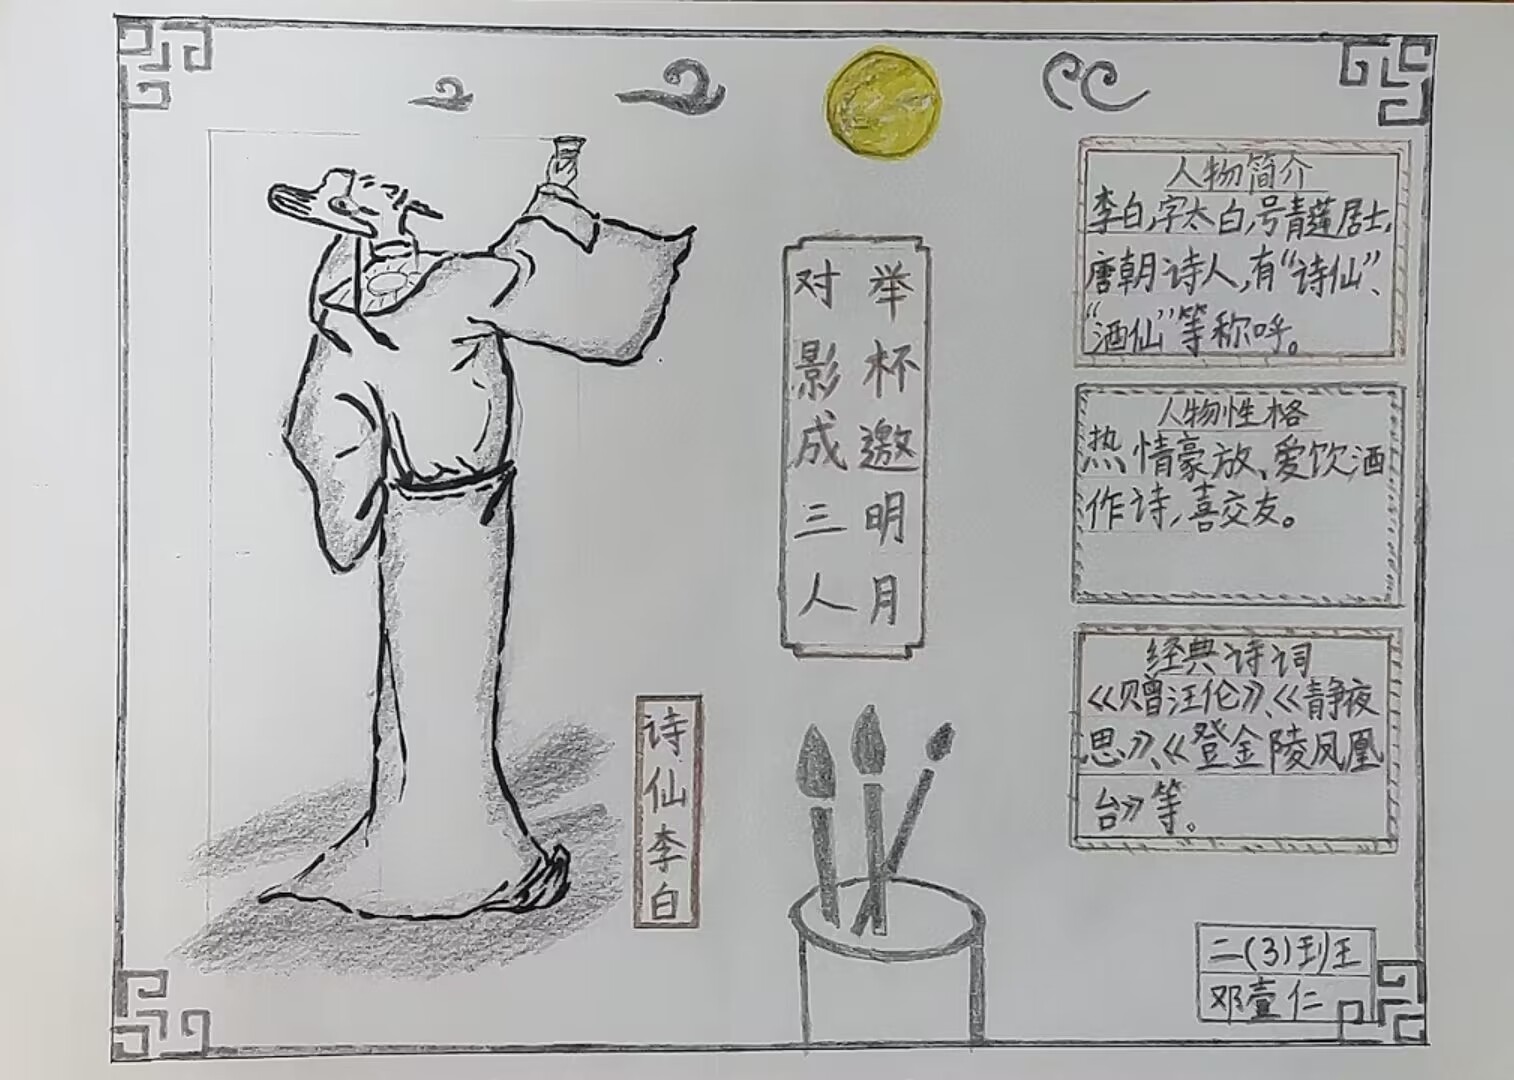 举杯邀明月
对影成三人
诗仙李白
人物简介
李白,字太白,号青莲居士,
唐朝诗人,有“诗仙”、
“酒仙”等称呼。
人物性格
热情豪放、爱饮酒
作诗,喜交友。
经典诗词
《赠汪伦》、《静夜
思》、《登金陵凤凰
台》等。
二(3)班王
邓壹仁